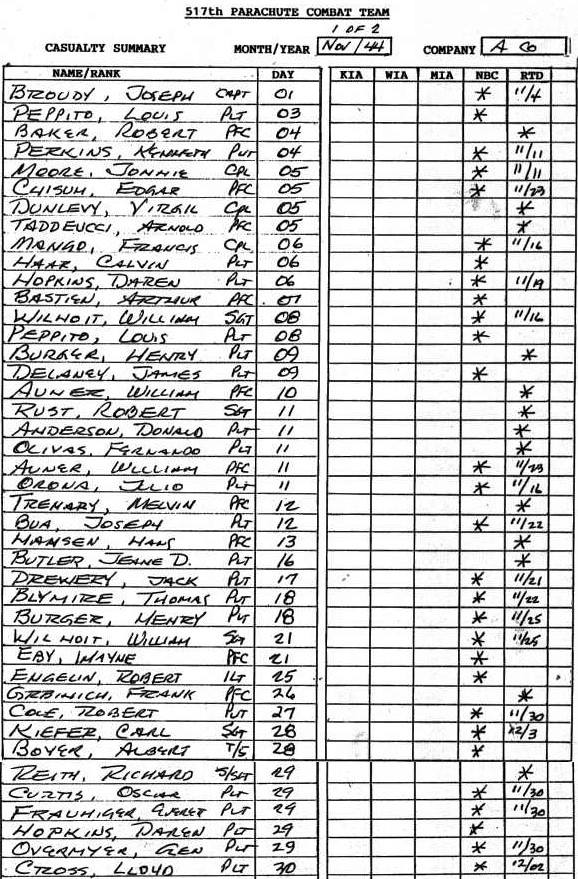 517th PARACHUTE COMBAT TEAM
1 OF 2
CASUALTY SUMMARY MONTH/YEAR Nov/44 COMPANY A Co
NAME/RANK DAY KIA WIA MIA NBC RTD
BROUDY, JOSEPH CAPT 01 * 11/4
PEPPITO, LOUIS PVT 03 *
BAKER, ROBERT PFC 04 *
PERKINS, KENNETH PVT 04 * 11/11
MOORE, JONNIE CPL 05 * 11/11
CHISUM, EDGAR PFC 05 * 11/23
DUNLEVY, VIRGIL CPL 05 *
TADDEUCCI, ARNOLD PFC 05 *
MANGO, FRANCIS CPL 06 * 11/16
HAAR, CALVIN PVT 06 *
HOPKINS, DAREN PVT 06 * 11/19
BASTIEN, ARTHUR PFC 07 *
WILHOIT, WILLIAM SGT 08 * 11/16
PEPPITO, LOUIS PVT 08 *
BURGER, HENRY PVT 09 *
DELANEY, JAMES PVT 09 *
AUNER, WILLIAM PFC 10 *
RUST, ROBERT SGT 11 *
ANDERSON, DONALD PVT 11 *
OLIVAS, FERNANDO PVT 11 *
AUNER, WILLIAM PFC 11 * 11/23
ORONA, JULIO PVT 11 * 11/16
TRENARY, MELVIN PFC 12 *
BUA, JOSEPH PVT 12 * 11/22
HANSEN, HANS PFC 13 *
BUTLER, JEANE D. PVT 16 *
DREWERY, JACK PVT 17 * 11/21
BLYMIRE, THOMAS PVT 18 * 11/22
BURGER, HENRY PVT 18 * 11/25
WILHOIT, WILLIAM SGT 21 * 11/25
EBY, WAYNE PFC 21 *
ENGELIN, ROBERT 1LT 25 *
GRBINICH, FRANK PFC 26 *
COLE, ROBERT PVT 27 * 11/30
KIEFER, CARL SGT 28 * 12/3
BOYER, ALBERT T/5 28 *
REITH, RICHARD S/SGT 29 *
CURTIS, OSCAR PVT 29 * 11/30
FRAUHIGER, EVERET PVT 29 * 11/30
HOPKINS, DAREN PVT 29 *
OVERMYER, GEN PVT 29 * 11/30
CROSS, LLOYD PVT 30 * 12/02